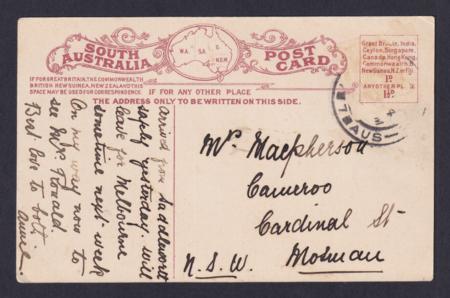 SOUTH AUSTRALIA
W.A. S.A. Q N.S.W.
POST CARD
Great Britain, India,
Ceylon, Singapore,
Canada, Hong Kong,
Commonwealth B.
New Guinea, N.Z. or Fiji
1D
ANY OTHER PL
1½D.
IF FOR GREAT BRITAIN, THE COMMONWEALTH,
BRITISH NEW GUINEA, NEW ZEALAND THIS
SPACE MAY BE USED FOR CORRESPONDENCE
IF FOR ANY OTHER PLACE
THE ADDRESS ONLY TO BE WRITTEN ON THIS SIDE.
7 AUS
Arrived from Saddleworth
safely yesterday. will
leave for Melbourne
sometime next week
On my way now to
see Mrs
Best love to
Annie
Mrs Macpherson
Cameroo
Cardinal St
Mosman
N.S.W.